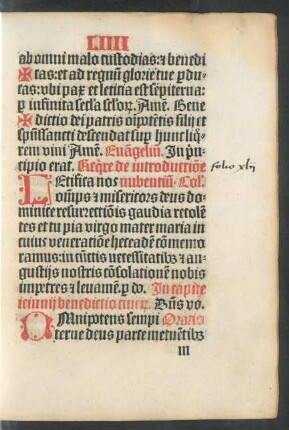 LIIII
ab omni malo custodias: ⁊ benedi
✠ cas: et ad regnū glorie tue ꝑdu-
cas: vbi pax et leticia est sēpiterna:
ꝑ infinita secła secłoꝝ. Amē. Bene
✠ dictio dei patris oīpotētis filij et
spūssancti descendat suꝑ hunc liq̄-
rem vini Amē. Euāgeliū. In prin-
cipio erat. Reqͥre de introductiōe
folio xlij
LEtifica nos nubentiū. Col.
ōsuꝑs ⁊ misericors deus do
minice resurrectiōis gaudia recolē
tes et tu pia virgo mater maria in
cuius veneratiōe hec eadē cōmemo
ramus: in cūctis necessitatibꝫ ⁊ an
gustijs nostris cōsolationem nobis
impetres ⁊ leuamē. ꝑ do. In capite
ieiunij benedictio cineꝝ. Dñs vo.
OMnipotens sempi Oratio
terne deus parce metuētibꝫ
III